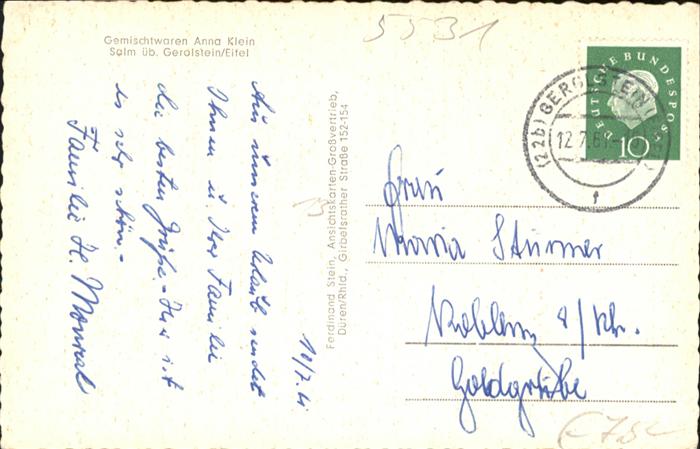 5531
Gemischtwaren Anna Klein
Salm üb. Gerolstein/Eifel
DEUTSCHE BUNDESPOST
10
(22b) GEROLSTEIN
12.7.61
f
10/7.61
Aus unserem Urlaub sendet
Ihnen u. Ihrer Familie
die besten Grüße. Hier ist
es sehr schön.-
Familie H. Monreal
Ferdinand Stein, Ansichtskarten-Großvertrieb,
Düren/Rhld., Girbelsrather Straße 152-154
Frau
Maria Stürmer
Koblenz a/Rh.
Goldgrube